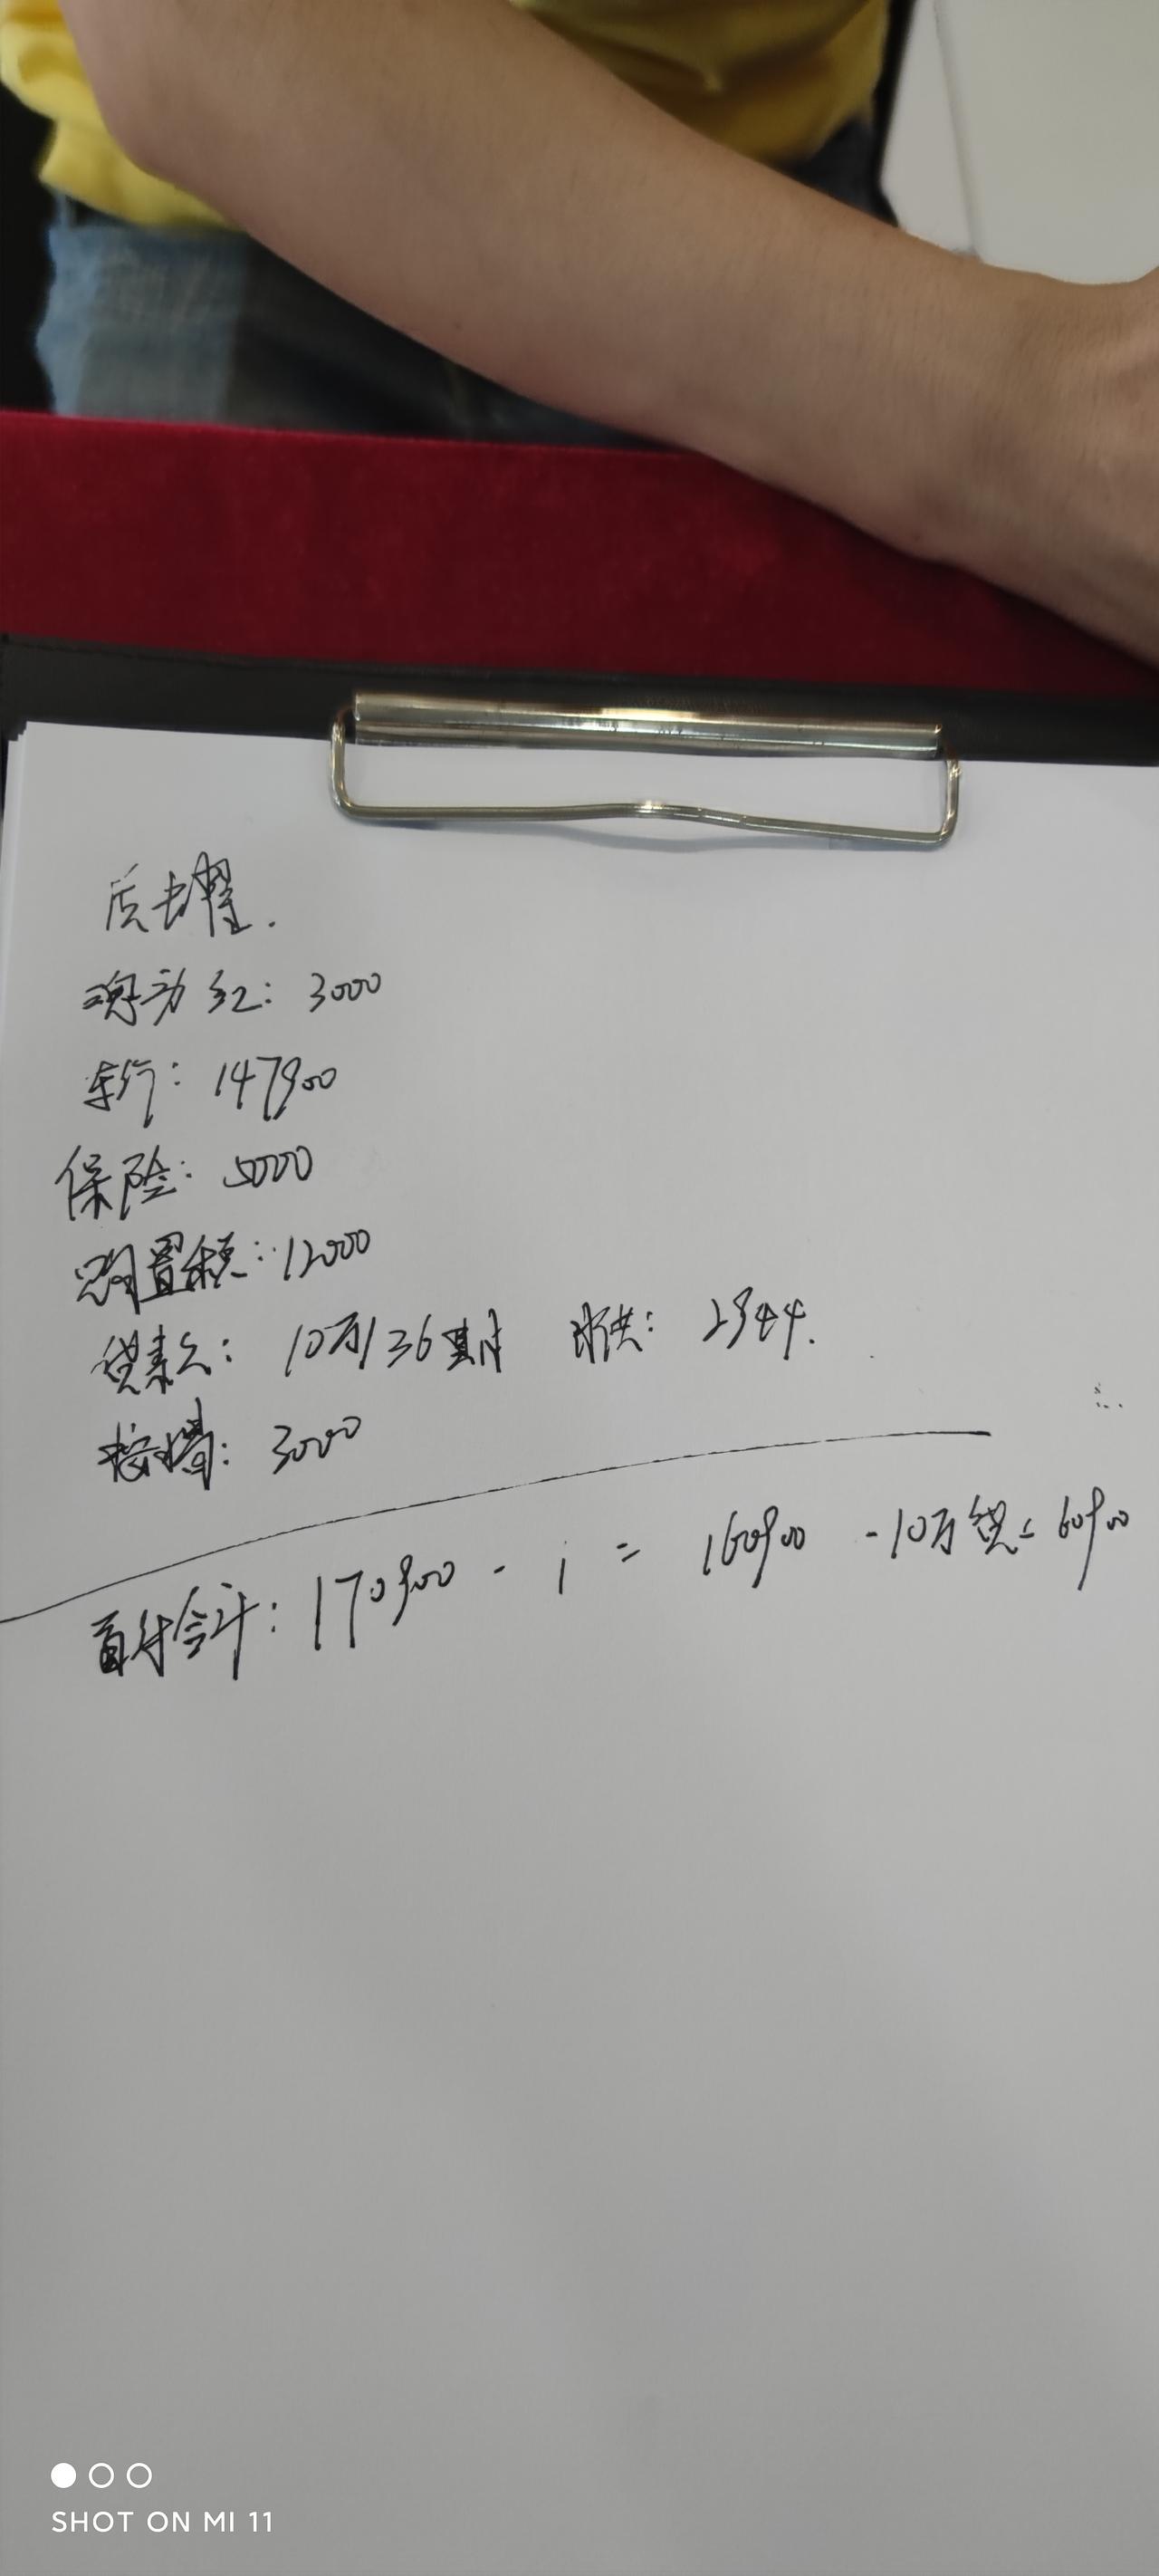 质壮耀.
魂动红: 3000
车价: 147900
保险: 5000
购置税: 12000
贷款: 10万/36期 月供: 2944.
按揭: 3000
首付合计: 170900 - 1 = 160900 -10万贷= 60900
SHOT ON MI 11